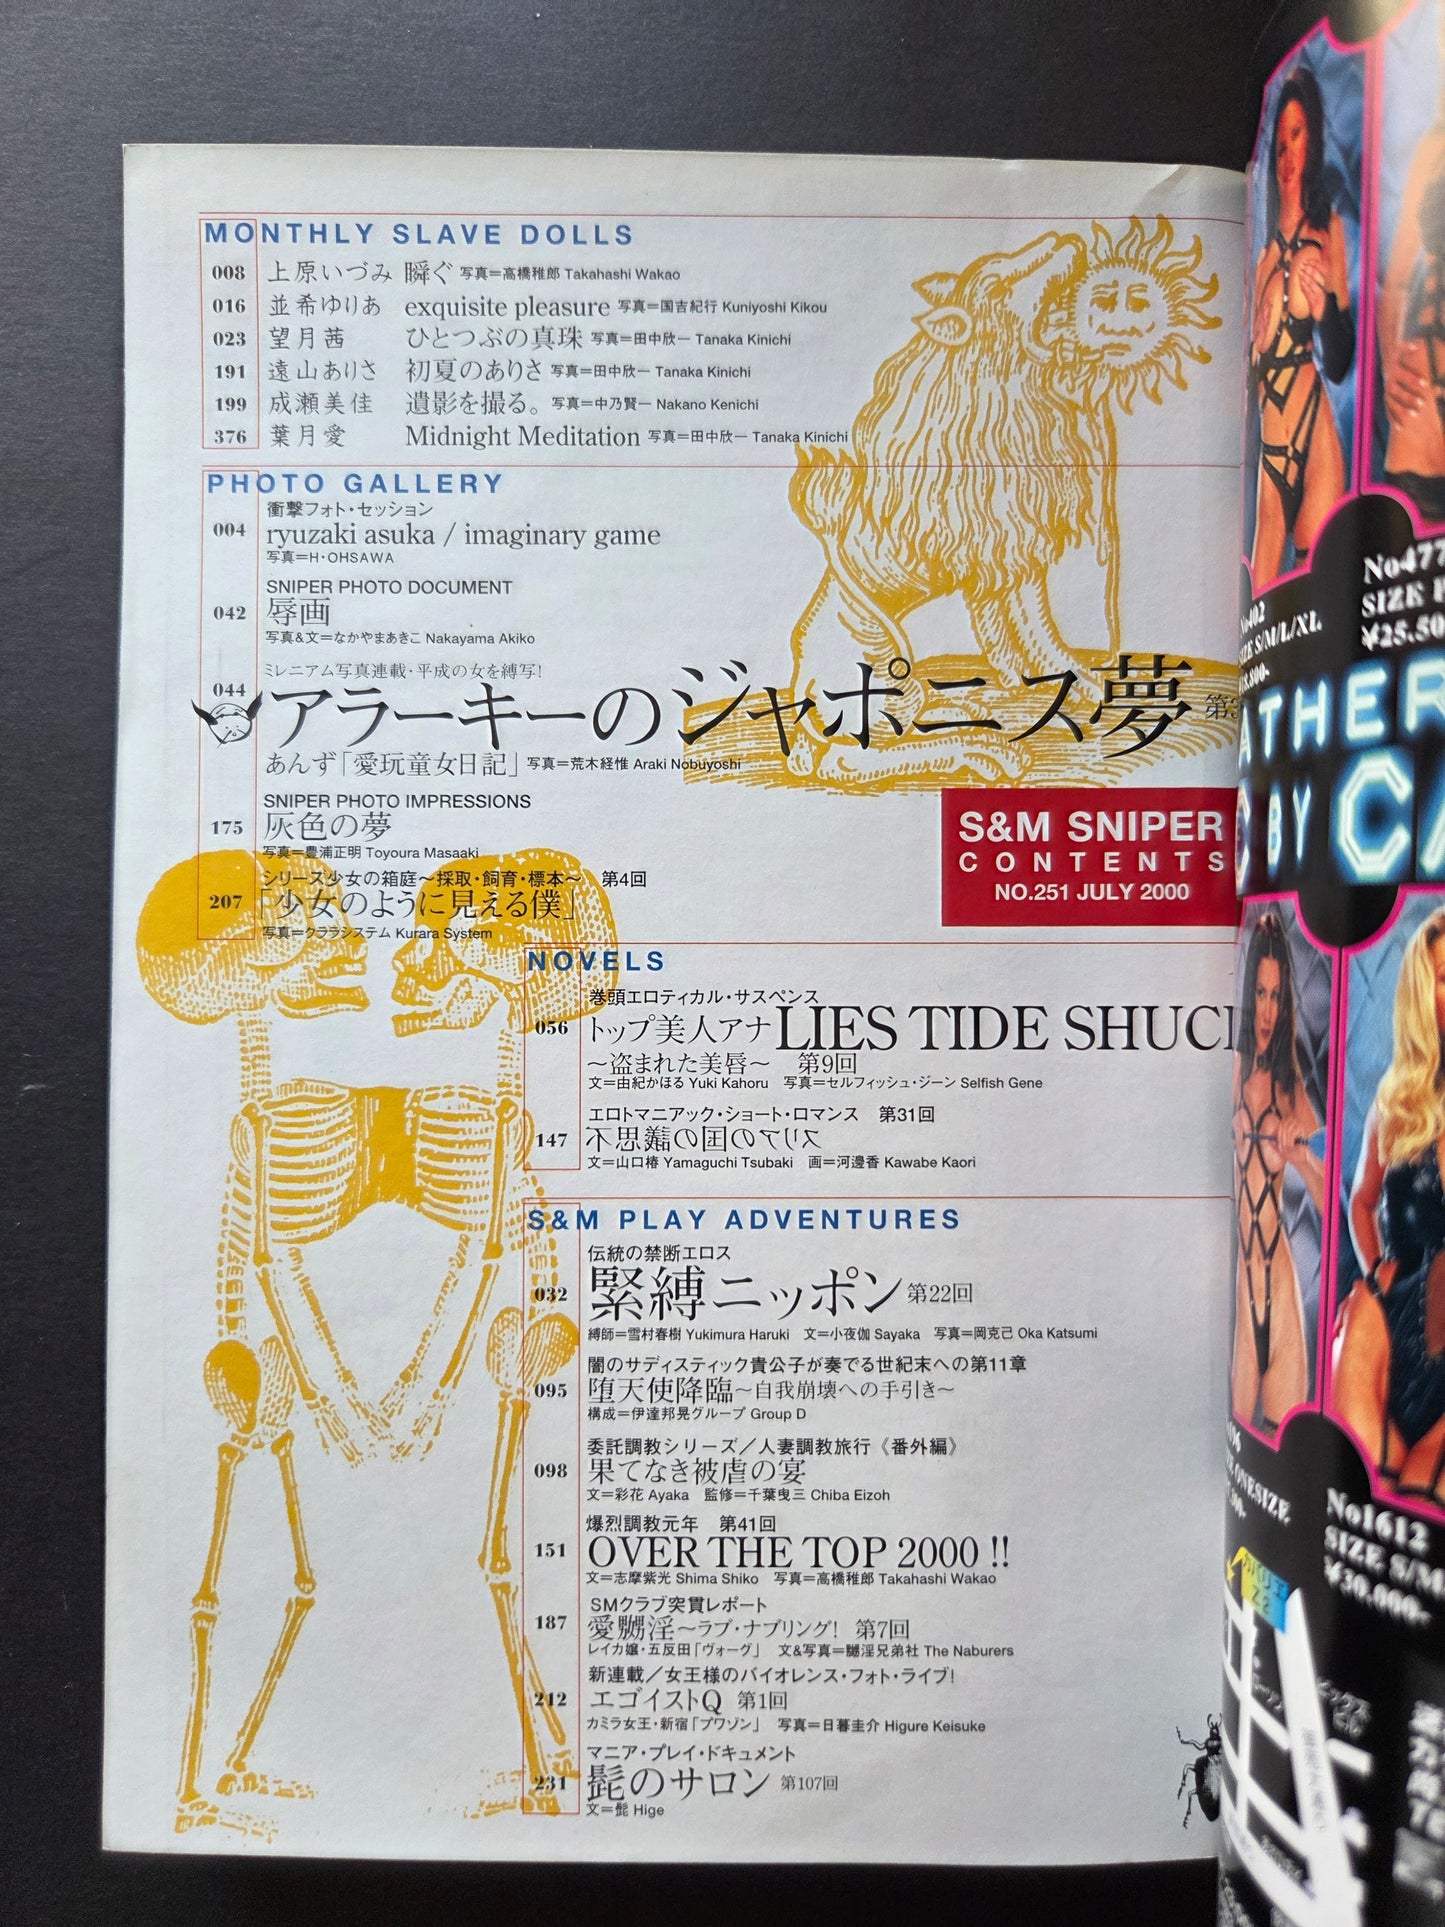 MONTHLY SLAVE DOLLS
008 上原いづみ 瞬ぐ 写真=高橋稚郎 Takahashi Wakao
016 並希ゆりあ exquisite pleasure 写真=国吉紀行 Kuniyoshi Kikou
023 望月茜 ひとつぶの真珠 写真=田中欣一 Tanaka Kinichi
191 遠山ありさ 初夏のありさ 写真=田中欣一 Tanaka Kinichi
199 成瀬美佳 遺影を撮る。 写真=中乃賢一 Nakano Kenichi
376 葉月愛 Midnight Meditation 写真=田中欣一 Tanaka Kinichi
PHOTO GALLERY
衝撃フォト・セッション
004 ryuzaki asuka / imaginary game
写真=H・OHSAWA
SNIPER PHOTO DOCUMENT
042 辱画
写真&文=なかやまあきこ Nakayama Akiko
ミレニアム写真連載・平成の女を縛写!
044 アラーキーのジャポニス夢 第3
あんず「愛玩童女日記」 写真=荒木経惟 Araki Nobuyoshi
SNIPER PHOTO IMPRESSIONS
175 灰色の夢
写真=豊浦正明 Toyoura Masaaki
シリーズ少女の箱庭~採取・飼育・標本~ 第4回
207 「少女のように見える僕」
写真=クララシステム Kurara System
S&M SNIPER
CONTENTS
NO.251 JULY 2000
NOVELS
巻頭エロティカル・サスペンス
056 トップ美人アナ LIES TIDE SHUC
~盗まれた美唇~ 第9回
文=由紀かほる Yuki Kahoru 写真=セルフィッシュ・ジーン Selfish Gene
エロトマニアック・ショート・ロマンス 第31回
147 不思議の国のアリス
文=山口椿 Yamaguchi Tsubaki 画=河邊香 Kawabe Kaori
S&M PLAY ADVENTURES
伝統の禁断エロス
032 緊縛ニッポン 第22回
縛師=雪村春樹 Yukimura Haruki 文=小夜伽 Sayaka 写真=岡克己 Oka Katsumi
闇のサディスティック貴公子が奏でる世紀末への第11章
095 堕天使降臨~自我崩壊への手引き~
構成=伊達邦晃グループ Group D
委託調教シリーズ/人妻調教旅行《番外編》
098 果てなき被虐の宴
文=彩花 Ayaka 監修=千葉曳三 Chiba Eizoh
爆烈調教元年 第41回
151 OVER THE TOP 2000 !!
文=志摩紫光 Shima Shiko 写真=高橋稚郎 Takahashi Wakao
SMクラブ突貫レポート
187 愛嬲淫~ラブ・ナブリング! 第7回
レイカ嬢・五反田「ヴォーグ」 文&写真=嬲淫兄弟社 The Naburers
新連載/女王様のバイオレンス・フォト・ライブ!
212 エゴイストQ 第1回
カミラ女王・新宿「プワゾン」 写真=日暮圭介 Higure Keisuke
マニア・プレイ・ドキュメント
231 髭のサロン 第107回
文=髭 Hige
No477
SIZE
¥25.50
402
SIZE S/M/L/XL
ATHER
BY CA
ONESIZE
No1612
SIZE S/M
¥30.000-